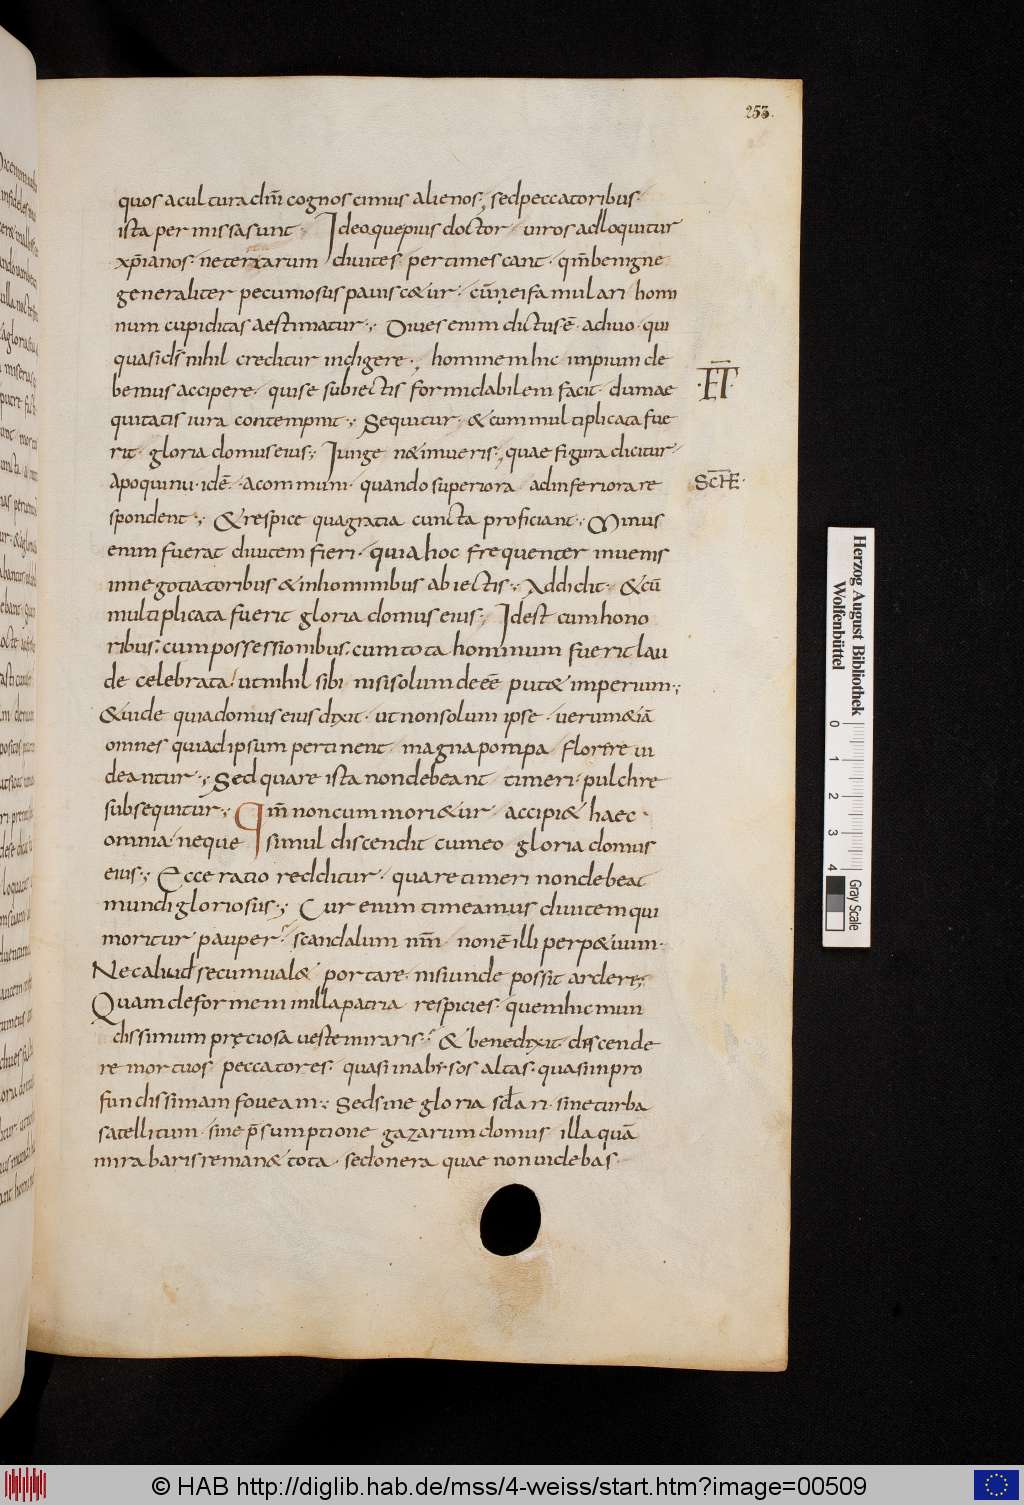 253.
quos a cultura dn̄i cognoscimus alienos, sed peccatoribus
ista permissa sunt. Ideoque pius doctor viros adloquitur
xp̄ianos. ne terrarum divites pertimescant. qm̄ benigne
generaliter pecuniosus pavisc&ur. cūm ei famulari homi
num cupiditas aestimatur; Dives enim dictus ē. a divo. qui
quasi ds̄ nihil creditur indigere; hominem hic impium de
bemus accipere. qui se subiectis formidabilem facit. dum ae
quitatis iura contempnit; Sequitur. & cum multiplicata fue
rit gloria domus eius; Iunge n& inveris, quae figura dicitur
apo quinu. idē. a commum. quando superiora ad inferiora re
spondent; & respice qua gratia cuncta proficiant; Minus
enim fuerat divitem fieri. quia hoc frequenter invenis
in negotiatoribus & in hominibus abiectis; Addidit. & cū
multiplicata fuerit gloria domus eius; Idest cum hono
ribus; cum possessionibus; cum tota hominum fuerit lau
de celebrata! ut nihil sibi nisi solum deēē put& imperium;
& vide quia domus eius dixit. ut non solum ipse. verum&iā
omnes qui ad ipsum pertinent magna pompa florere vi
deantur; Sed quare ista non debeant timeri. pulchre
subsequitur; Qm̄ non cum mori&ur accipi& haec
omnia neque simul discendit cum eo gloria domus
eius; Ecce ratio redditur. quare timeri non debeat
mundi gloriosus; Cur enim timeamus divitem qui
moritur pauper? scandalum nm̄ non ē illi perp&uum.
Nec aliud secum val& portare. nisi unde possit ardere;
Quam deformem in illa patria respicies. quem hic mun
dissimum pręciosa veste miraris? & bene dixit. discende
re mortuos peccatores. quasi in abissos altas. quasi in pro
fundissimam foveam; Sed sine gloria sc̄lari. sine turba
satellitum. sine p̄sumptione gazarum domus illa quā
mirabaris reman& tota. sed onera quae non videbas.
·ET·
SCHE·
Herzog August Bibliothek
Wolfenbüttel
0 1 2 3 4
Gray Scale
© HAB http://diglib.hab.de/mss/4-weiss/start.htm?image=00509